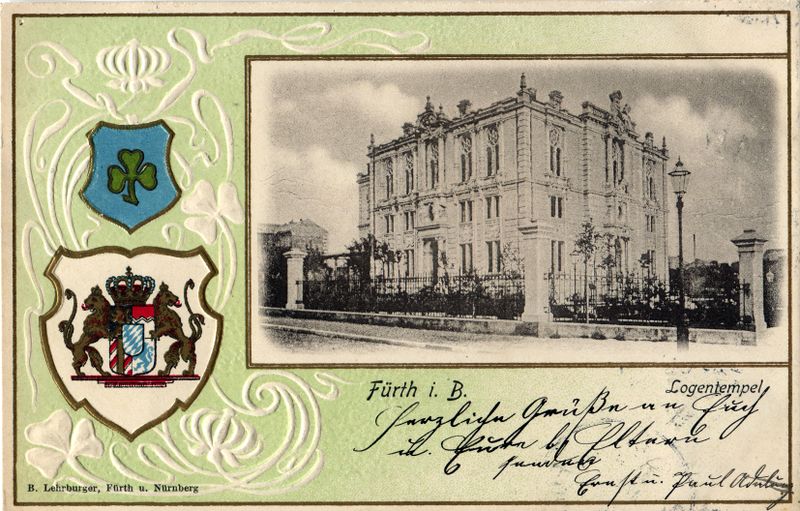 Fürth i. B.
Logentempel
Herzliche Grüße an Euch
u. Eure b. Eltern
senden
Ernst u. Paul
B. Lehrburger, Fürth u. Nürnberg